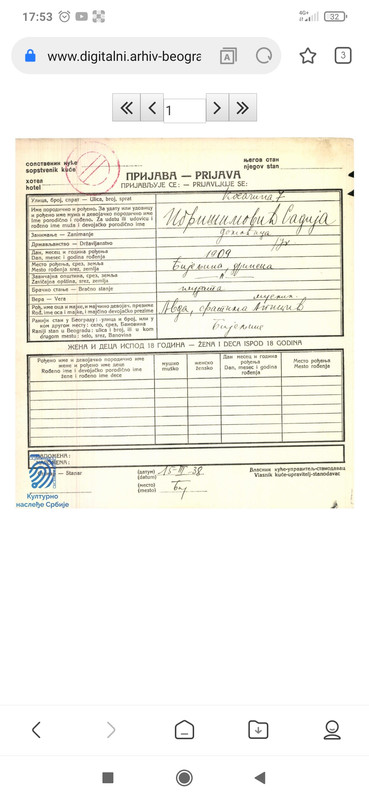 17:53
4G+
32
www.digitalni.arhiv-beogra
3
1
сопственик куће
sopstvenik kuće
хотел
hotel
његов стан
njegov stan
ПРИЈАВА — PRIJAVA
ПРИЈАВЉУЈЕ СЕ: — PRIJAVLJUJE SE:
Улица, број, спрат — Ulica, broj, sprat
7
Име породично и рођено. За удату или удовицу
и рођено име мужа и девојачко породично име
Ime porodično i rođeno. Za udatu ili udovicu i
rođeno ime muža i devojačko porodično ime
Ибришимовић Садија
Занимање — Zanimanje
домаћица
Држављанство — Državljanstvo
Дан, месец и година рођења
Dan, mesec i godina rođenja
1909
Место рођења, срез, земља
Mesto rođenja srez, zemlja
Бијељина
Завичајна општина, срез, земља
Zavičajna opština, srez, zemlja
Брачно стање — Bračno stanje
удата
Вера — Vera
муслим.
Рођ. име оца и мајке, и мајчино девојач. презиме
Rođ. ime oca i majke, i majčino devojačko prezime
Авдо,
Ранији стан у Београду: улица и број, или у
ком другом месту: село, срез, бановина
Raniji stan u Beogradu: ulica i broj, ili u kom
drugom mestu: selo, srez, Banovina
Бијељина
ЖЕНА И ДЕЦА ИСПОД 18 ГОДИНА — ŽENA I DECA ISPOD 18 GODINA
Рођено име и девојачко породично име
жене и рођено име деце
Rođeno ime i devojačko porodično ime
žene i rođeno ime dece
мушко
muško
женско
žensko
Дан, месец и година
рођења
Dan, mesec i godina
rođenja
Место рођења
Mesto rođenja
— Stanar
(датум)
(datum)
15-III-38
(место)
(mesto)
Бгд
Власник куће-управитељ-станодавац
Vlasnik kuće-upravitelj-stanodavac
Културно
наслеђе Србије